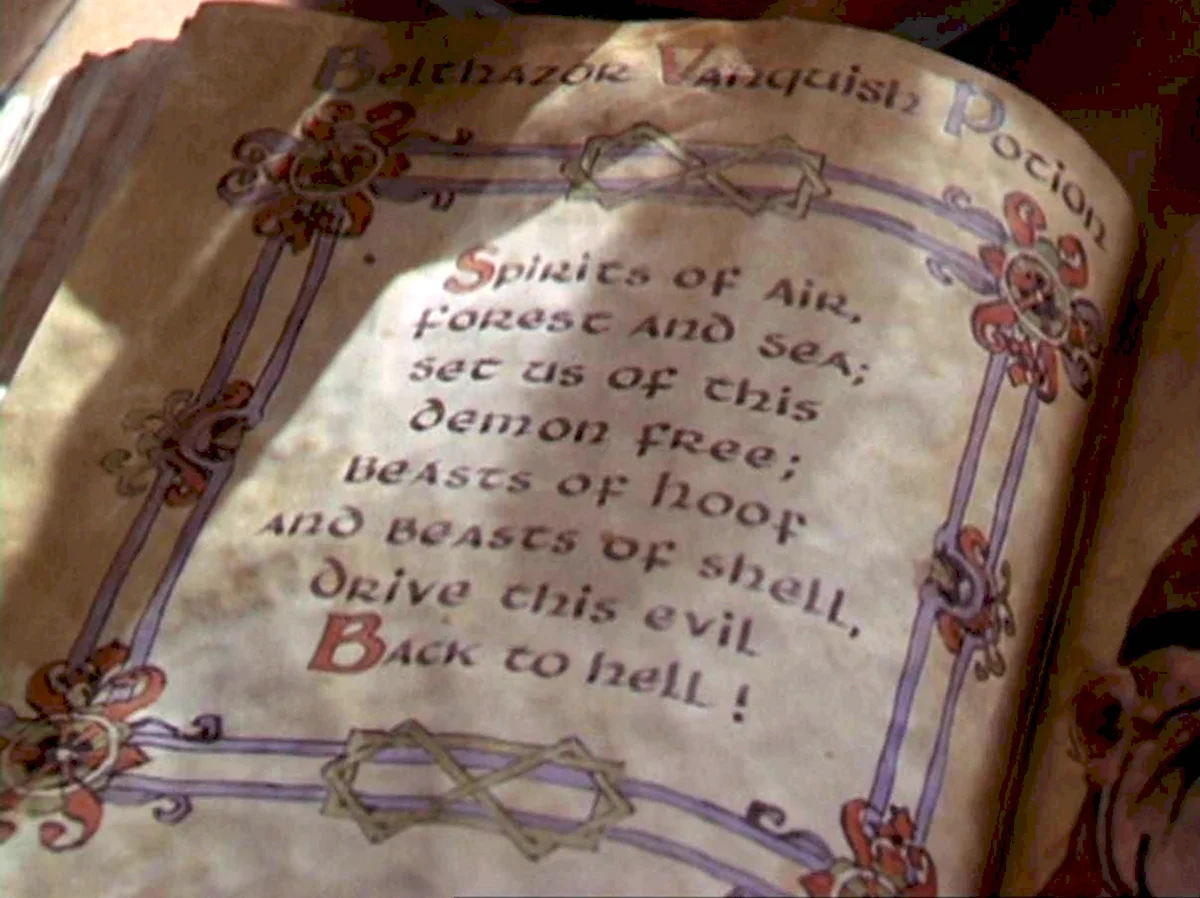 Belthazor Vanquish Potion
Spirits of Air,
forest and sea;
set us of this
demon free;
Beasts of hoof
and Beasts of shell,
drive this evil
Back to hell!